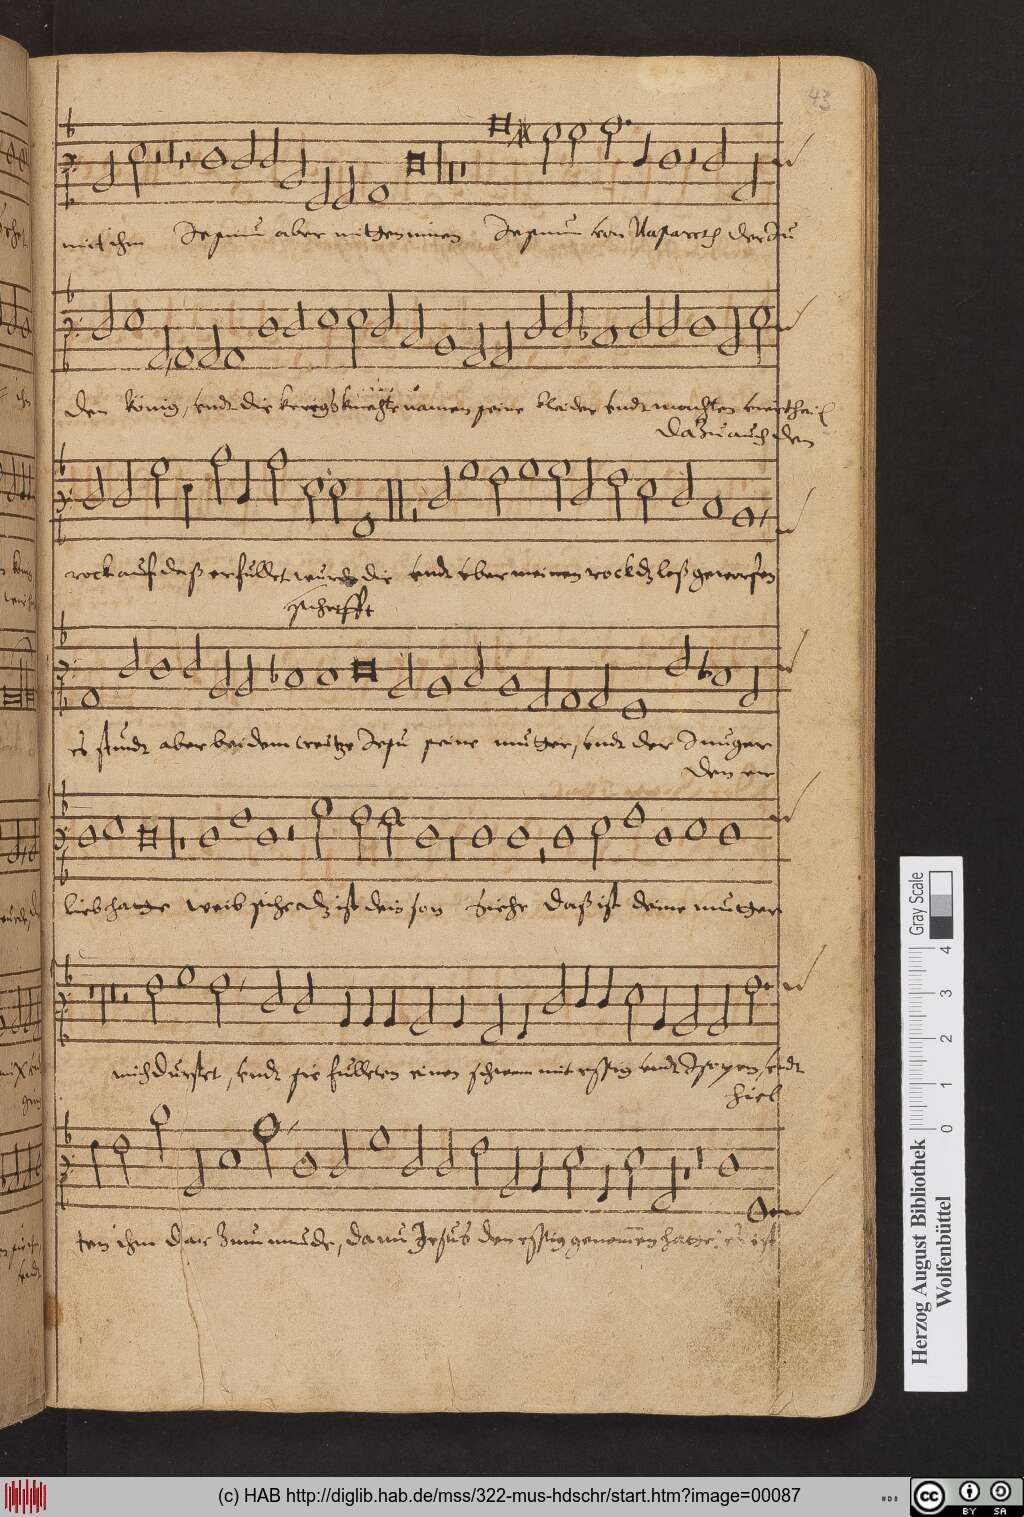 43
mit ihm Jesum aber mitten innen Jesum von Nasareth der Ju
den könig, vndt die kreigs knechte namen seine kleider vndt machten vier theil
dazu auch den
rock auf daß erfullet wurde die vndt vber meinen rock dz loß geworfen
schrifft
es stundt aber bei dem creutze Jesu seine mutter, vndt der Junger
den er
lieb hatte weib sihe dz ist dein son siehe daß ist deine mutter
mich durstet, vndt sie fulleten einen schwam mit essig vndt Isopen, vndt
hiel
ten ihm dar zum munde, da nu Jesus den essig genomen hatte: es ist
Herzog August Bibliothek
Wolfenbüttel
0 1 2 3 4
Gray Scale
(c) HAB http://diglib.hab.de/mss/322-mus-hdschr/start.htm?image=00087
cc
BY SA